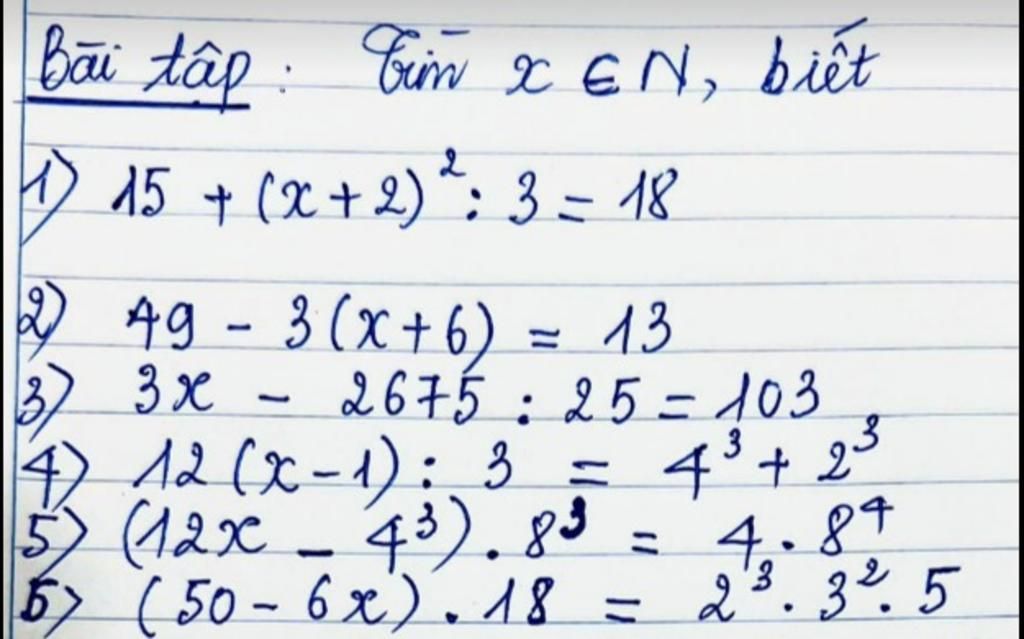 Bài tập : Tìm x ∈ N, biết
1) 15 + (x + 2)² : 3 = 18
2) 49 - 3(x + 6) = 13
3) 3x - 2675 : 25 = 103
4) 12(x - 1) : 3 = 4³ + 2³
5) (12x - 4³) . 8³ = 4 . 8⁴
6) (50 - 6x) . 18 = 2³ . 3² . 5